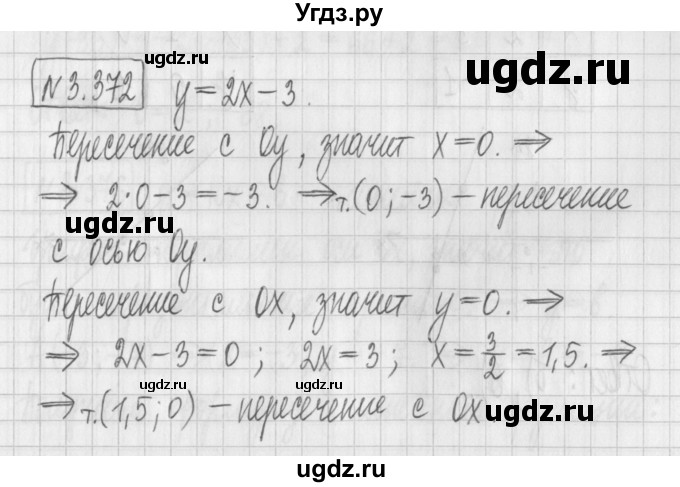 Угдз.ру
ugdz.ru ugdz.ru
N 3.372 y = 2x − 3.
Пересечение с Oy, значит x = 0. ⇒
⇒ 2·0 − 3 = −3. ⇒ т.(0; −3) − пересечение
ugdz.ru ugdz.ru
с осью Oy.
Пересечение с Ox, значит y = 0. ⇒
⇒ 2x − 3 = 0; 2x = 3; x = 3/2 = 1,5. ⇒
ugdz.ru ugdz.ru
⇒ т.(1,5; 0) − пересечение с Ox
ugdz.ru
ugdz.ru